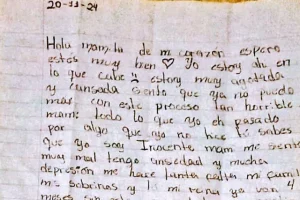 20-11-24
Hola mamita de mi corazón espero
estés muy bien ♡ Yo estoy ahí en
lo que cabe y estoy muy agotada
y cansada siento que ya no puedo
más con este proceso tan horrible
mami todo lo que yo eh pasado
por algo que yo no hice tú sabes
que yo soy Inocente mam me sento
muy mal tengo ansiedad y mucha
depresión me hace
mis sobrinos y a mi reina ya van 4
meses